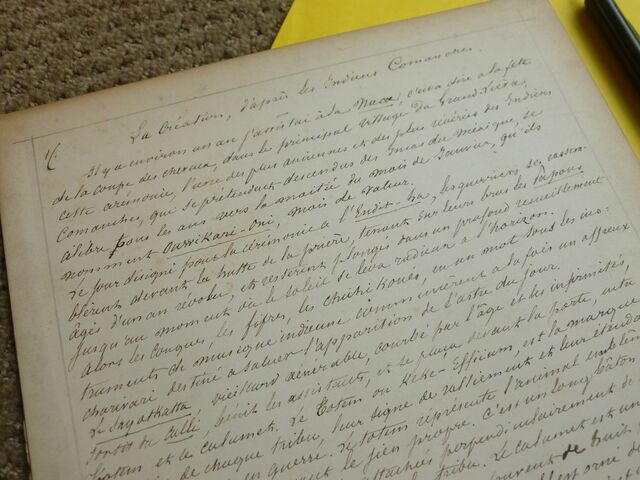 1/.
La Création, d'après les Indiens Comanches.
Il y a environ un an j'assistai à la Nuca, c'est à dire à la fête
de la coupe des cheveux, dans le principal village du Grand-Lièvre,
cette cérémonie, l'une des plus anciennes et des plus révérées des Indiens
Comanches, qui se prétendent descendus des Incas du Mexique, se
célèbre tous les ans vers la moitié du mois de Janvier, qu'ils
nomment Ouwikari-Oni, mois de valeur.
Le jour désigné pour la cérémonie à l'Endit-ha, les guerriers se rassem-
blèrent devant la hutte de la prière, tenant sur leurs bras les papous
âgés d'un an révolu, et restèrent plongés dans un profond recueillement
jusqu'au moment où le soleil se leva radieux à l'horizon.
Alors les conques, les fifres, les chichikoués, en un mot tous les ins-
truments de musique indienne commencèrent à la fois un affreux
charivari destiné à saluer l'apparition de l'astre du jour.
Le Sayotkatta, vieillard vénérable, courbé par l'âge et les infirmités,
sortit du Calli, bénit les assistants, et se plaça devant la porte, entre
totem et le calumet. Le Totem ou Keke-Efficium, est la marque
de chaque tribu, leur signe de ralliement et leur étendard
en guerre. Le totem représente l'animal emblème
le sien propre. C'est un long bâton
attachés perpendiculairement
tribu. Le calumet est un
souvent de huit
est orné de